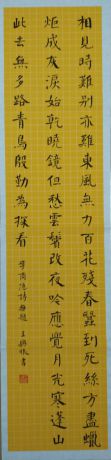 相見時難別亦難東風無力百花殘春蠶到死絲方盡蠟
炬成灰淚始乾曉鏡但愁雲鬢改夜吟應覺月光寒蓬山
此去無多路青鳥殷勤為探看 李商隐詩無題 王書